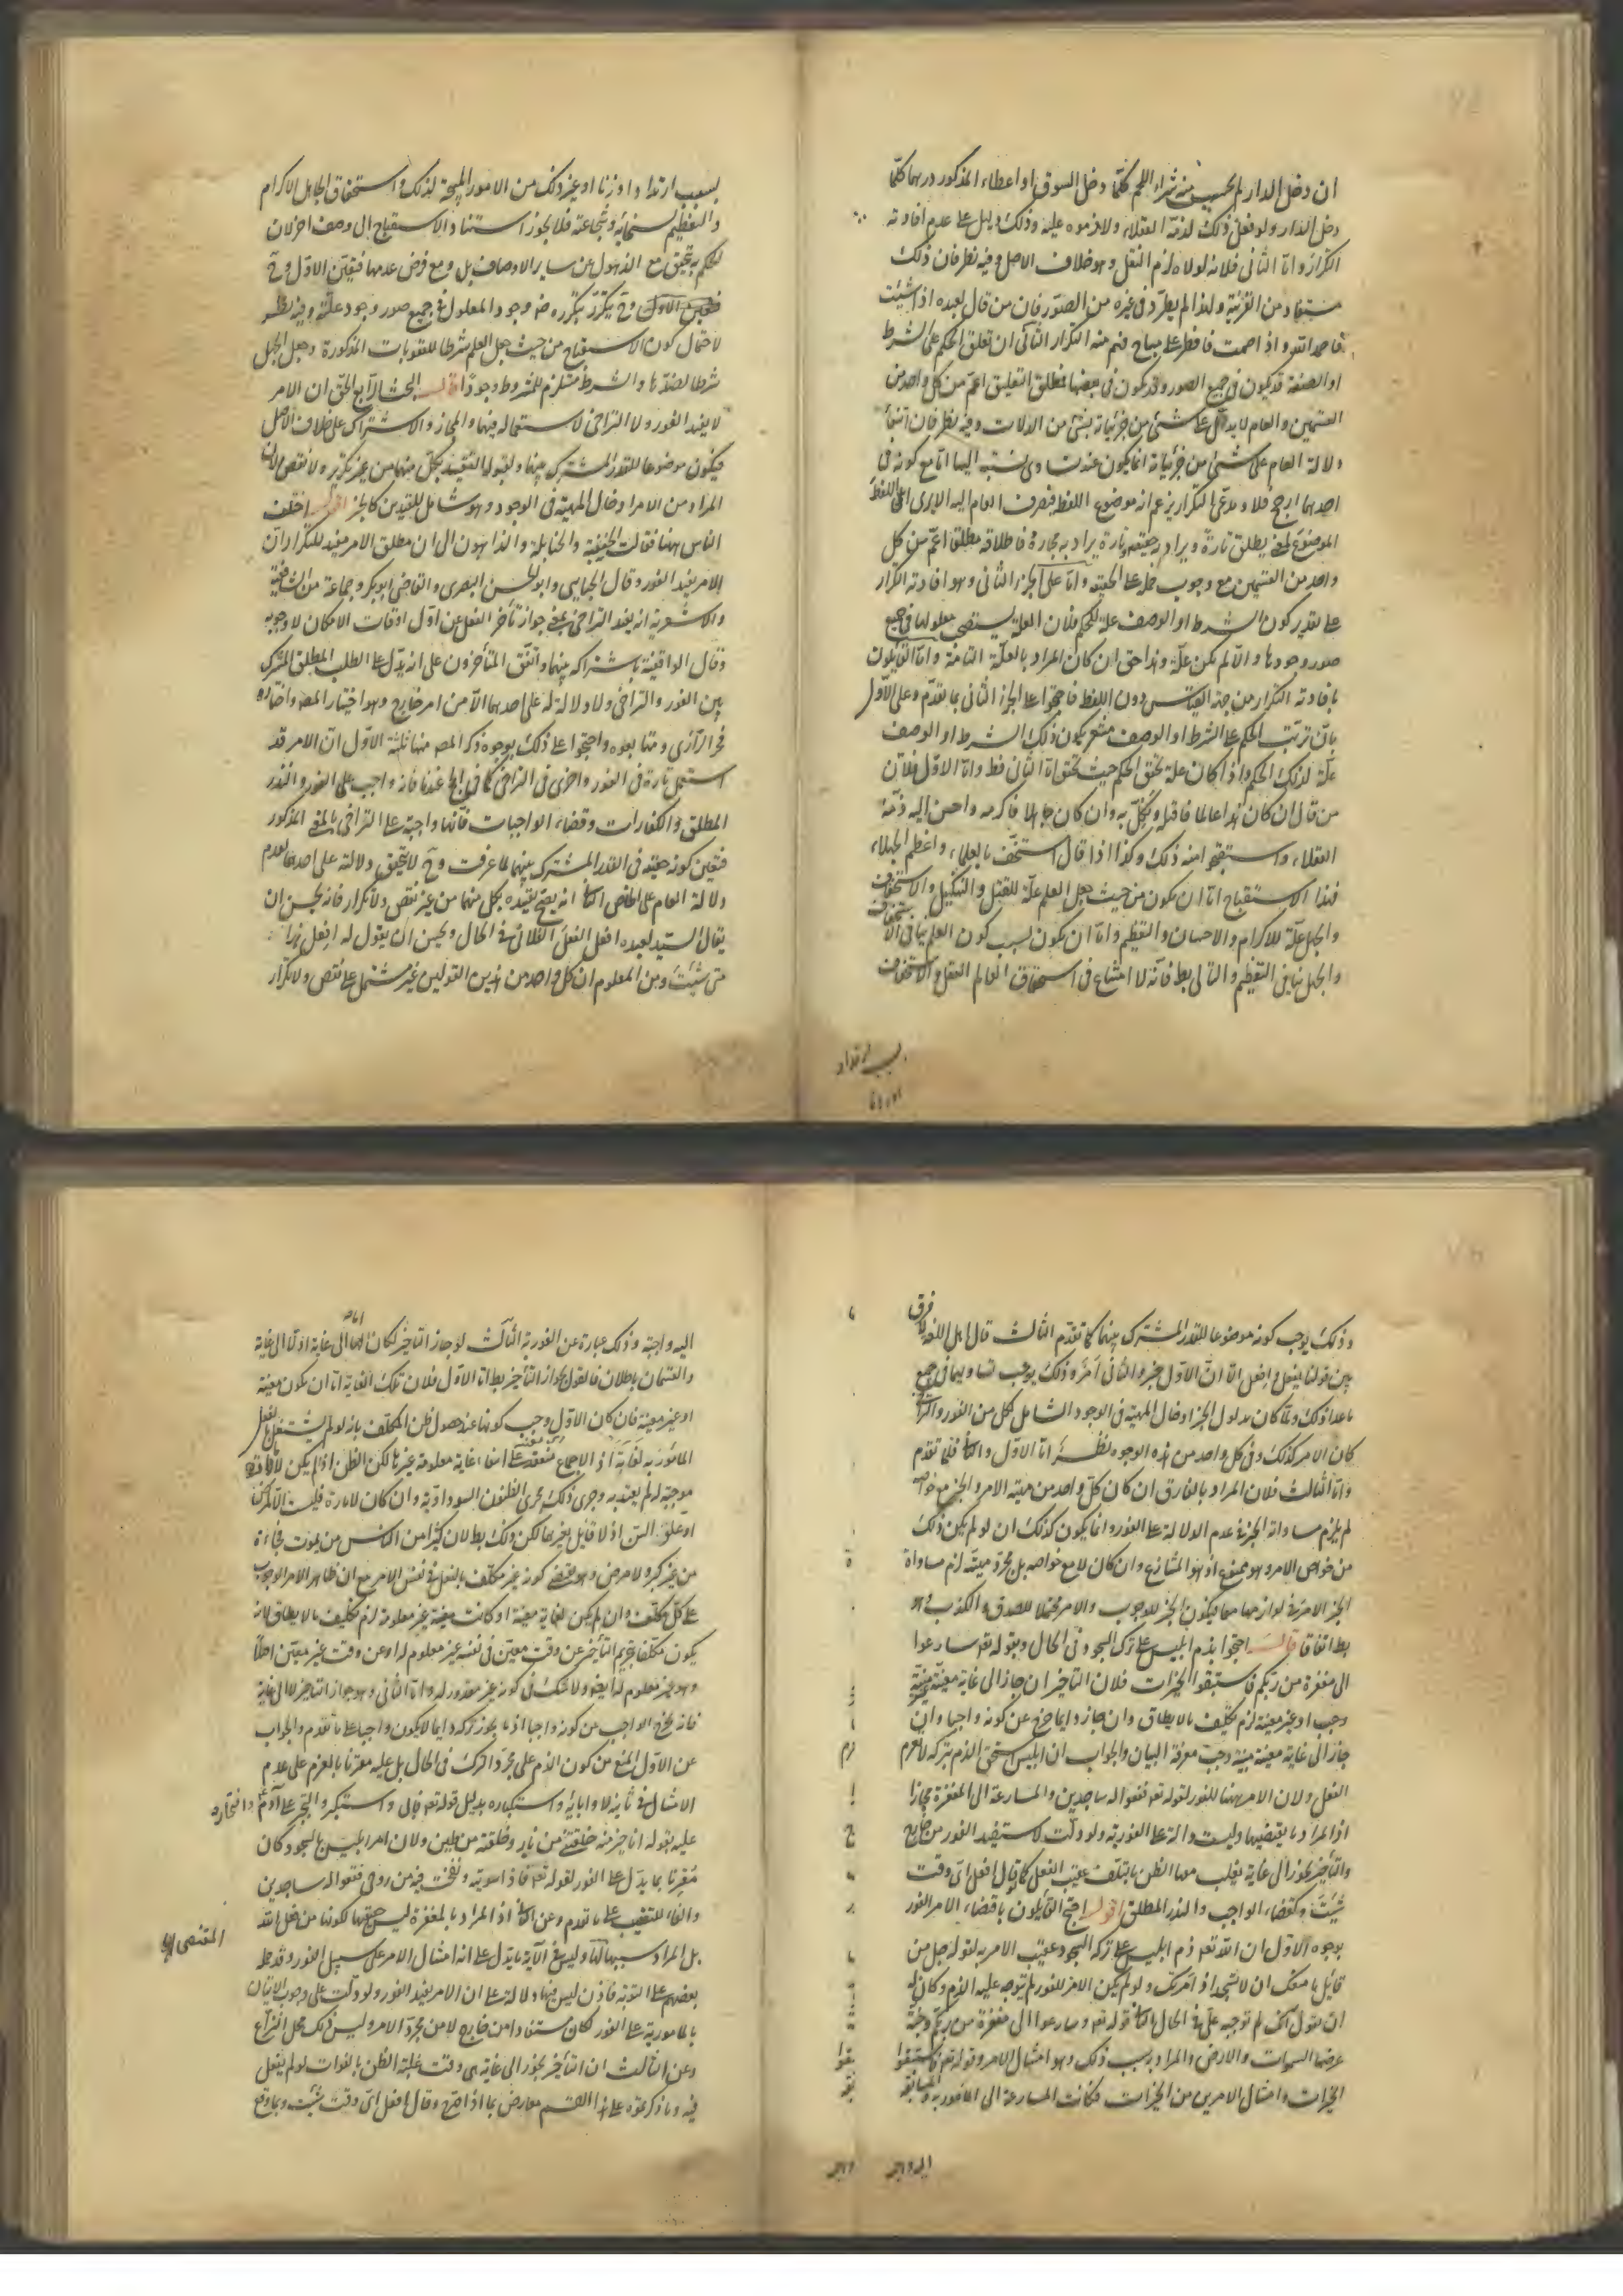 ان دخل الدار لم يحسن منه شراء اللحم كلما دخل السوق او اعطاء المذكور درهما كلما
دخل الدار ولو فعل ذلك لذمه العقلاء ولاموه عليه وذلك دليل على عدم افادته
التكرار واما الثانى فلانه لولاه لزم النقل وهو خلاف الاصل وفيه نظر فان ذلك
مستفاد من القرينة ولذا لم يطرد فى غيره من الصور فان من قال لعبده اذا شبعت
فاحمد الله واذا صمت فافطر على مباح فهم منه التكرار الثانى ان تعلق الحكم على الشرط
او الصفة قد يكون فى جميع الصور وقد يكون فى بعضها فمطلق التعليق اعم من كل واحد من
القسمين والعام لا يدل على شئ من جزئياته بشئ من الدلالات وفيه نظر فان انتفاء
دلالة العام على شئ من جزئياته انما يكون عند تساوى نسبته اليها اما مع كونه فى
احدهما ارجح فلا ومدعى التكرار يزعم انه موضوع اللفظ فيصرف العام اليه الا يرى ان اللفظ
الموضوع لمعنى يطلق تارة ويراد به حقيقته وتارة يراد به مجازه فاطلاقه مطلقا اعم من كل
واحد من القسمين مع وجوب حمله على الحقيقة واما على الجزء الثانى وهو افادته التكرار
على تقدير كون الشرط او الوصف علة للحكم فلان العلة يستصحب معلولها فى جميع
صور وجودها والا لم يكن علة وهذا حق ان كان المراد بالعلة التامة واما القائلون
بافادته التكرار من جهة القياس دون اللفظ فاحتجوا على الجزء الثانى بما تقدم وعلى الاول
بان ترتب الحكم على الشرط او الوصف مشعر بكون ذلك الشرط او الوصف
علة لذلك الحكم واذا كان علة تحقق الحكم حيث تحقق اما الثانى فظ واما الاول فلان
من قال ان كان هذا عالما فاقتله ونكل به وان كان جاهلا فاكرمه واحسن اليه ذمه
العقلاء واستقبحوا منه ذلك وكذا اذا قال استخف بالعلماء واعظم الجهلاء
فهذا الاستقباح اما ان يكون من حيث جعل العلم علة للقتل والتنكيل والاستخفاف
والجهل علة للاكرام والاحسان والتعظيم واما ان يكون بسبب كون العلم ينافى الاستخفاف
والجهل ينافى التعظيم والتالى بط فانه لا امتناع فى استحقاق العالم القتل والاستخفاف
بسبب ارتداد
بسبب ارتداد او زنا او غير ذلك من الامور المبيحة لذلك واستحقاق الجاهل الاكرام
والتعظيم بسخائه وشجاعته فلا يجوز استناد الاستقباح الى وصف اخر لان
الحكم به يتحقق مع الذهول عن ساير الاوصاف بل ومع فرض عدمها فتعين الاول وح
يتكرر بتكرره ضرورة وجود المعلول فى جميع صور وجود علته وفيه نظر
لاحتمال كون الاستقباح من حيث جعل العلم شرطا للعقوبات المذكورة وجعل الجهل
شرطا لضدها والشرط مستلزم للمشروط وجودا قال البحث الرابع الحق ان الامر
لا يفيد الفور ولا التراخى لاستعماله فيهما والمجاز والاشتراك على خلاف الاصل
فيكون موضوعا للقدر المشترك بينهما ولقبوله التقييد بكل منهما من غير تكرير ولا نقص ولان
المراد من الامر ادخال المهية فى الوجود وهو شامل للقيدين كالخبر اقول اختلف
الناس ههنا فقالت الحنفية والحنابلة والذاهبون الى ان مطلق الامر مفيد للتكرار ان
الامر يفيد الفور وقال الجبايى وابو الحسين البصرى والقاضى ابو بكر وجماعة من الشافعية
والاشعرية انه يفيد التراخى بمعنى جواز تأخر الفعل عن اول اوقات الامكان لا وجوبه
وقال الواقفية باشتراكه بينهما واتفق المتأخرون على انه يدل على الطلب المطلق المشترك
بين الفور والتراخى ولا دلالة له على احدهما الا من امر خارج وهو اختيار المصه واختاره
فخر الرازى ومتابعوه واحتجوا على ذلك بوجوه ذكر المصه منها ثلثة الاول ان الامر قد
استعمل تارة فى الفور واخرى فى التراخى كما فى الحج عندنا فانه واجب على الفور والنذر
المطلق والكفارات وقضاء الواجبات فانها واجبة على التراخى بالمعنى المذكور
فتعين كونه حقيقة فى القدر المشترك بينهما لما عرفت وح لا يتحقق دلالة على احدهما لعدم
دلالة العام على الخاص الثانى انه يصح تقييده بكل منهما من غير نقص ولا تكرار فانه يحسن ان
يقال السيد لعبده افعل الفعل الفلانى فى الحال ويحسن ان يقول له افعل هذا
متى شئت ومن المعلوم ان كل واحد من هذين القولين غير مشتمل على نقص ولا تكرار
وذلك يوجب كونه موضوعا للقدر المشترك بينهما كما تقدم الثالث قال اهل اللغة لا فرق
بين قولنا يفعل وافعل الا ان الاول خبر والثانى امر وذلك يوجب تساويهما فى جميع
ما عدا ذلك ولما كان مدلول الخبر ادخال المهية فى الوجود الشامل لكل من الفور والتراخى
كان الامر كذلك وفى كل واحد من هذه الوجوه نظر اما الاول والثانى فلما تقدم
واما الثالث فلان المراد بالفارق ان كان كل واحد من مهية الامر والخبر مع خواصه
لم يلزم مساواته الخبر فى عدم الدلالة على الفور وانما يكون كذلك ان لو لم يكن ذلك
من خواص الامر وهو ممنوع اذ هو المتنازع وان كان لا مع خواصه بل مجرد مهيته لزم مساواة
الخبر الامر فى لوازمهما معا فيكون الخبر للوجوب والامر محتملا للصدق والكذب وهو
بط اتفاقا قال احتجوا بذم ابليس على ترك السجود فى الحال وبقوله تعه سارعوا
الى مغفرة من ربكم فاستبقوا الخيرات فلان التأخير ان جاز الى غاية معينة غير مبينة
وجب او غير معينة لزم تكليف ما لا يطاق وان جاز دايما خرج عن كونه واجبا وان
جاز الى غاية معينة مبينة وجبت معرفة البيان والجواب ان ابليس استحق الذم بتركه لا لعزم
الفعل ولان الامر ههنا للفور لقوله تعه فقعوا له ساجدين والمسارعة الى المغفرة مجازا
اذ المراد ما يقتضيها وليست دالة على الفورية ولو دلت لاستفيد الفور من خارج
والتأخير يجوز الى غاية يغلب معها الظن بالتلف عقيب الفعل كما لو قال افعل اى وقت
شئت وكقضاء الواجب والنذر المطلق اقول احتج القائلون باقتضاء الامر الفور
بوجوه الاول ان الله تعه ذم ابليس على تركه السجود عقيب الامر به لقوله جل من
قائل ما منعك ان لا تسجد اذ امرتك ولو لم يكن الامر للفور لم يتوجه عليه الذم وكان له
ان يقول انك لم توجبه على فى الحال الثانى قوله تعه وسارعوا الى مغفرة من ربكم وجنة
عرضها السموات والارض والمراد بسبب ذلك وهو امتثال الامر وقوله تعه فاستبقوا
الخيرات وامتثال الامر من الخيرات فكانت المسارعة الى المأمور به والمسابقة
اليه واجبة
اليه واجبة وذلك عبارة عن الفورية الثالث لو جاز التأخير لكان اما الى غاية او لا الى غاية
والقسمان باطلان فالقول بجواز التأخير بط اما الاول فلان تلك الغاية اما ان يكون معينة
او غير معينة فان كان الاول وجب كونها عند حصول ظن المكلف بانه لو لم يشتغل بالفعل
المأمور به لفاته اذ الاجماع منعقد على انتفاء غاية معلومة غيرها لكن الظن ان لم يكن لامارة
موجبة له لم يعتد به وجرى ذلك مجرى الظنون السوداوية وان كان لامارة فليست الا المرض
او علو السن اذ لا قايل بغيرهما لكن ذلك بط لان كثيرا من الناس من يموت فجأة
من غير كبر ولا مرض وهو يقتضى كونه غير مكلف بالفعل فى نفس الامر مع ان ظاهر الامر الوجوب
على كل مكلف وان لم يكن لغاية معينة او كانت معينة غير معلومة لزم تكليف ما لا يطاق لانه
يكون مكلفا بتحريم التأخير عن وقت معين فى نفسه غير معلوم له او عن وقت غير معين اصلا
وهو غير معلوم له ايضا ولا شك فى كونه غير مقدور له واما الثانى وهو جواز التأخير لا الى غاية
فانه يخرج الواجب عن كونه واجبا اذ ما يجوز تركه دايما لا يكون واجبا على ما تقدم والجواب
عن الاول المنع من كون الذم على مجرد الترك فى الحال بل عليه مقترنا بالعزم على عدم
الامتثال فى ثانيه لابائه واستكباره بدليل قوله تعه ابى واستكبر والتجبر على آدم وافتخاره
عليه بقوله انا خير منه خلقتنى من نار وخلقته من طين ولان امر ابليس بالسجود كان
مقرنا بما يدل على الفور لقوله تعه فاذا سويته ونفخت فيه من روحى فقعوا له ساجدين
والفاء للتعقيب على ما تقدم وعن الثانى اذ المراد بالمغفرة ليس حقيقتها لكونها من فعل الله
بل المراد سببها المقتضى لها وليس فى الآية ما يدل على انه امتثال الامر على سبيل الفور وقد حمله
بعضهم على التوبة فاذن ليس فيها دلالة على ان الامر يفيد الفور ولو دلت على وجوب الاتيان
بالمأمور به على الفور لكان مستفادا من خارج لا من مجرد الامر وليس ذلك محل النزاع
وعن الثالث ان التأخير يجوز الى غاية هى وقت غلبة الظن بالفوات لو لم يفعل
فيه وما ذكرتموه على هذا القسم معارض بما اذا صرح وقال افعل اى وقت شئت وبما وقع